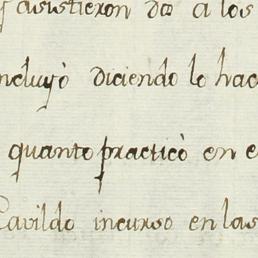 y asistieron dos a los
ncluyò diciendo lo hac
quanto practicò en e
Cavildo incurso en las